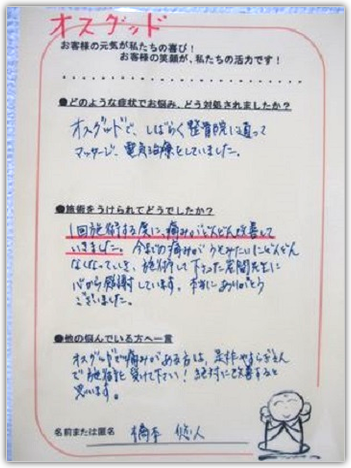 オスグッド
お客様の元気が私たちの喜び！
お客様の笑顔が、私たちの活力です！
●どのような症状でお悩み、どう対処されましたか？
オスグッドで、しばらく整骨院に通って
マッサージ、電気治療としていました。
●施術をうけられてどうでしたか？
1回施術する度に、痛みがどんどん改善して
いきました。今までの痛みがうそみたいにどんどん
なくなっていき、施術して下さった
心から感謝しています。本当にありがとう
ございました。
●他の悩んでいる方へ一言
オスグッドで痛みがある方は、是非やすらぎさん
で施術を受けて下さい！絶対に改善すると
思います。
名前または匿名 橋本 悠人